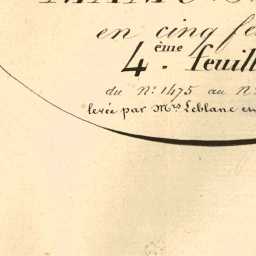 en cinq fe
4.ème feuill
du N.º 1475 au N.
levée par Mrs Leblanc en